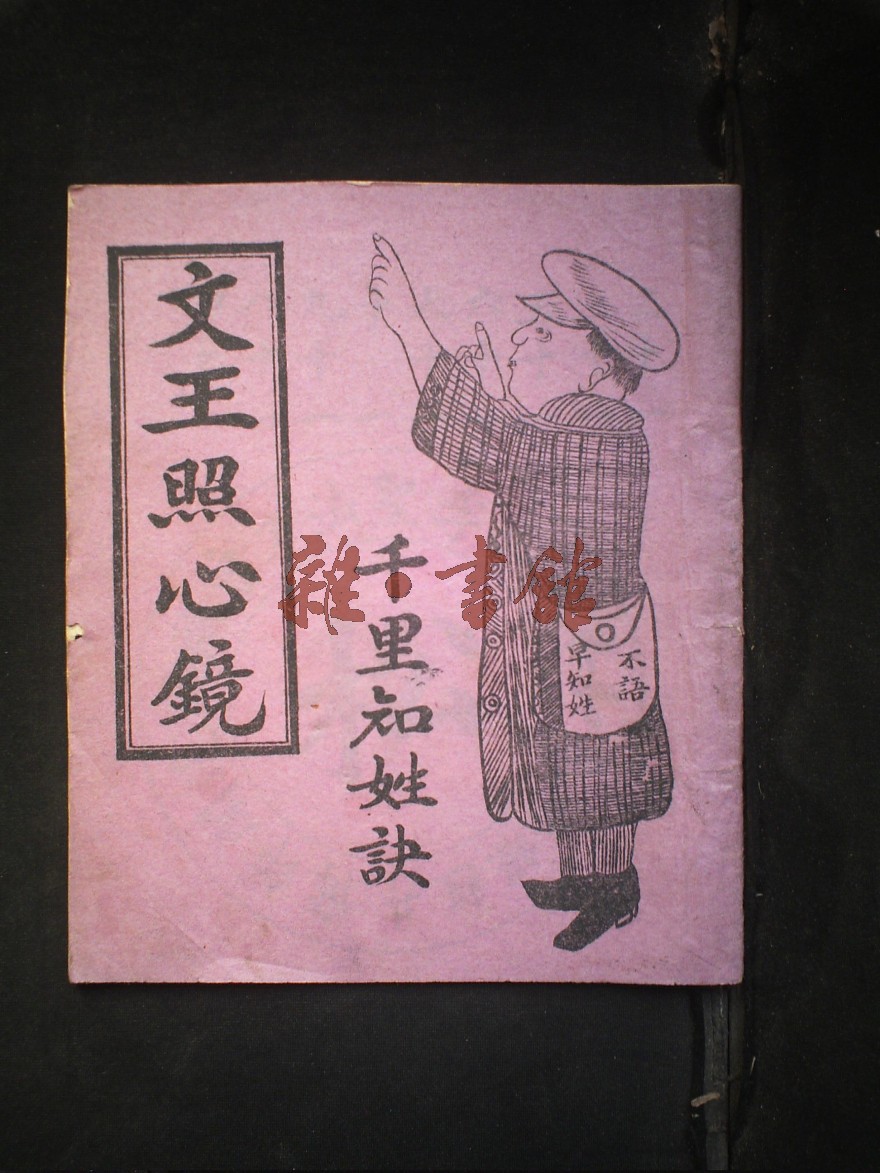 文王照心鏡
千里知姓訣
不語
早知姓
雜·書館